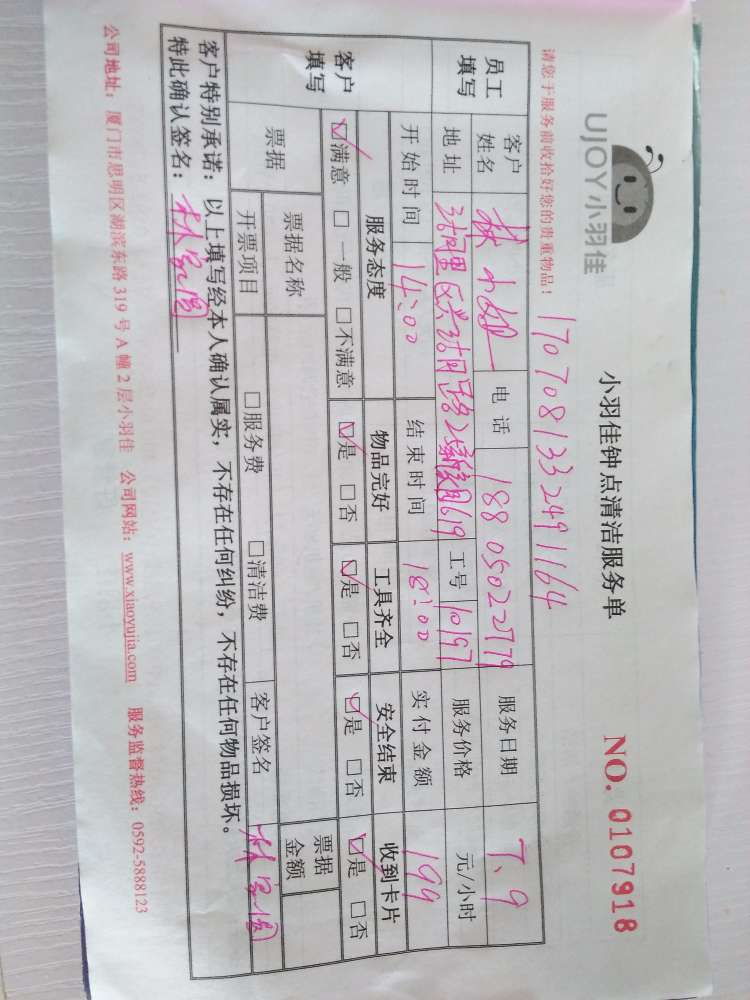 UJOY小羽佳
小羽佳钟点清洁服务单
NO. 0107918
请您于服务前收拾好您的贵重物品！
1707081332491164
员工填写 客户姓名 林小姐 电话 18805022779 服务日期 7.9
地址 湖里区兴湖路25号 619 工号 10197 服务价格 元/小时
开始时间 14:00 结束时间 18:00 实付金额 199
客户填写 服务态度 物品完好 工具齐全 安全结束 收到卡片
☑满意 □一般 □不满意 ☑是 □否 ☑是 □否 ☑是 □否 ☑是 □否
票据 票据名称 票据金额
开票项目 □服务费 □清洁费 客户签名 林
客户特别承诺：以上填写经本人确认属实，不存在任何纠纷，不存在任何物品损坏。
特此确认签名：林
公司地址：厦门市思明区湖滨东路319号A幢2层小羽佳 公司网站：www.xiaoyujia.com 服务监督热线：0592-5888123